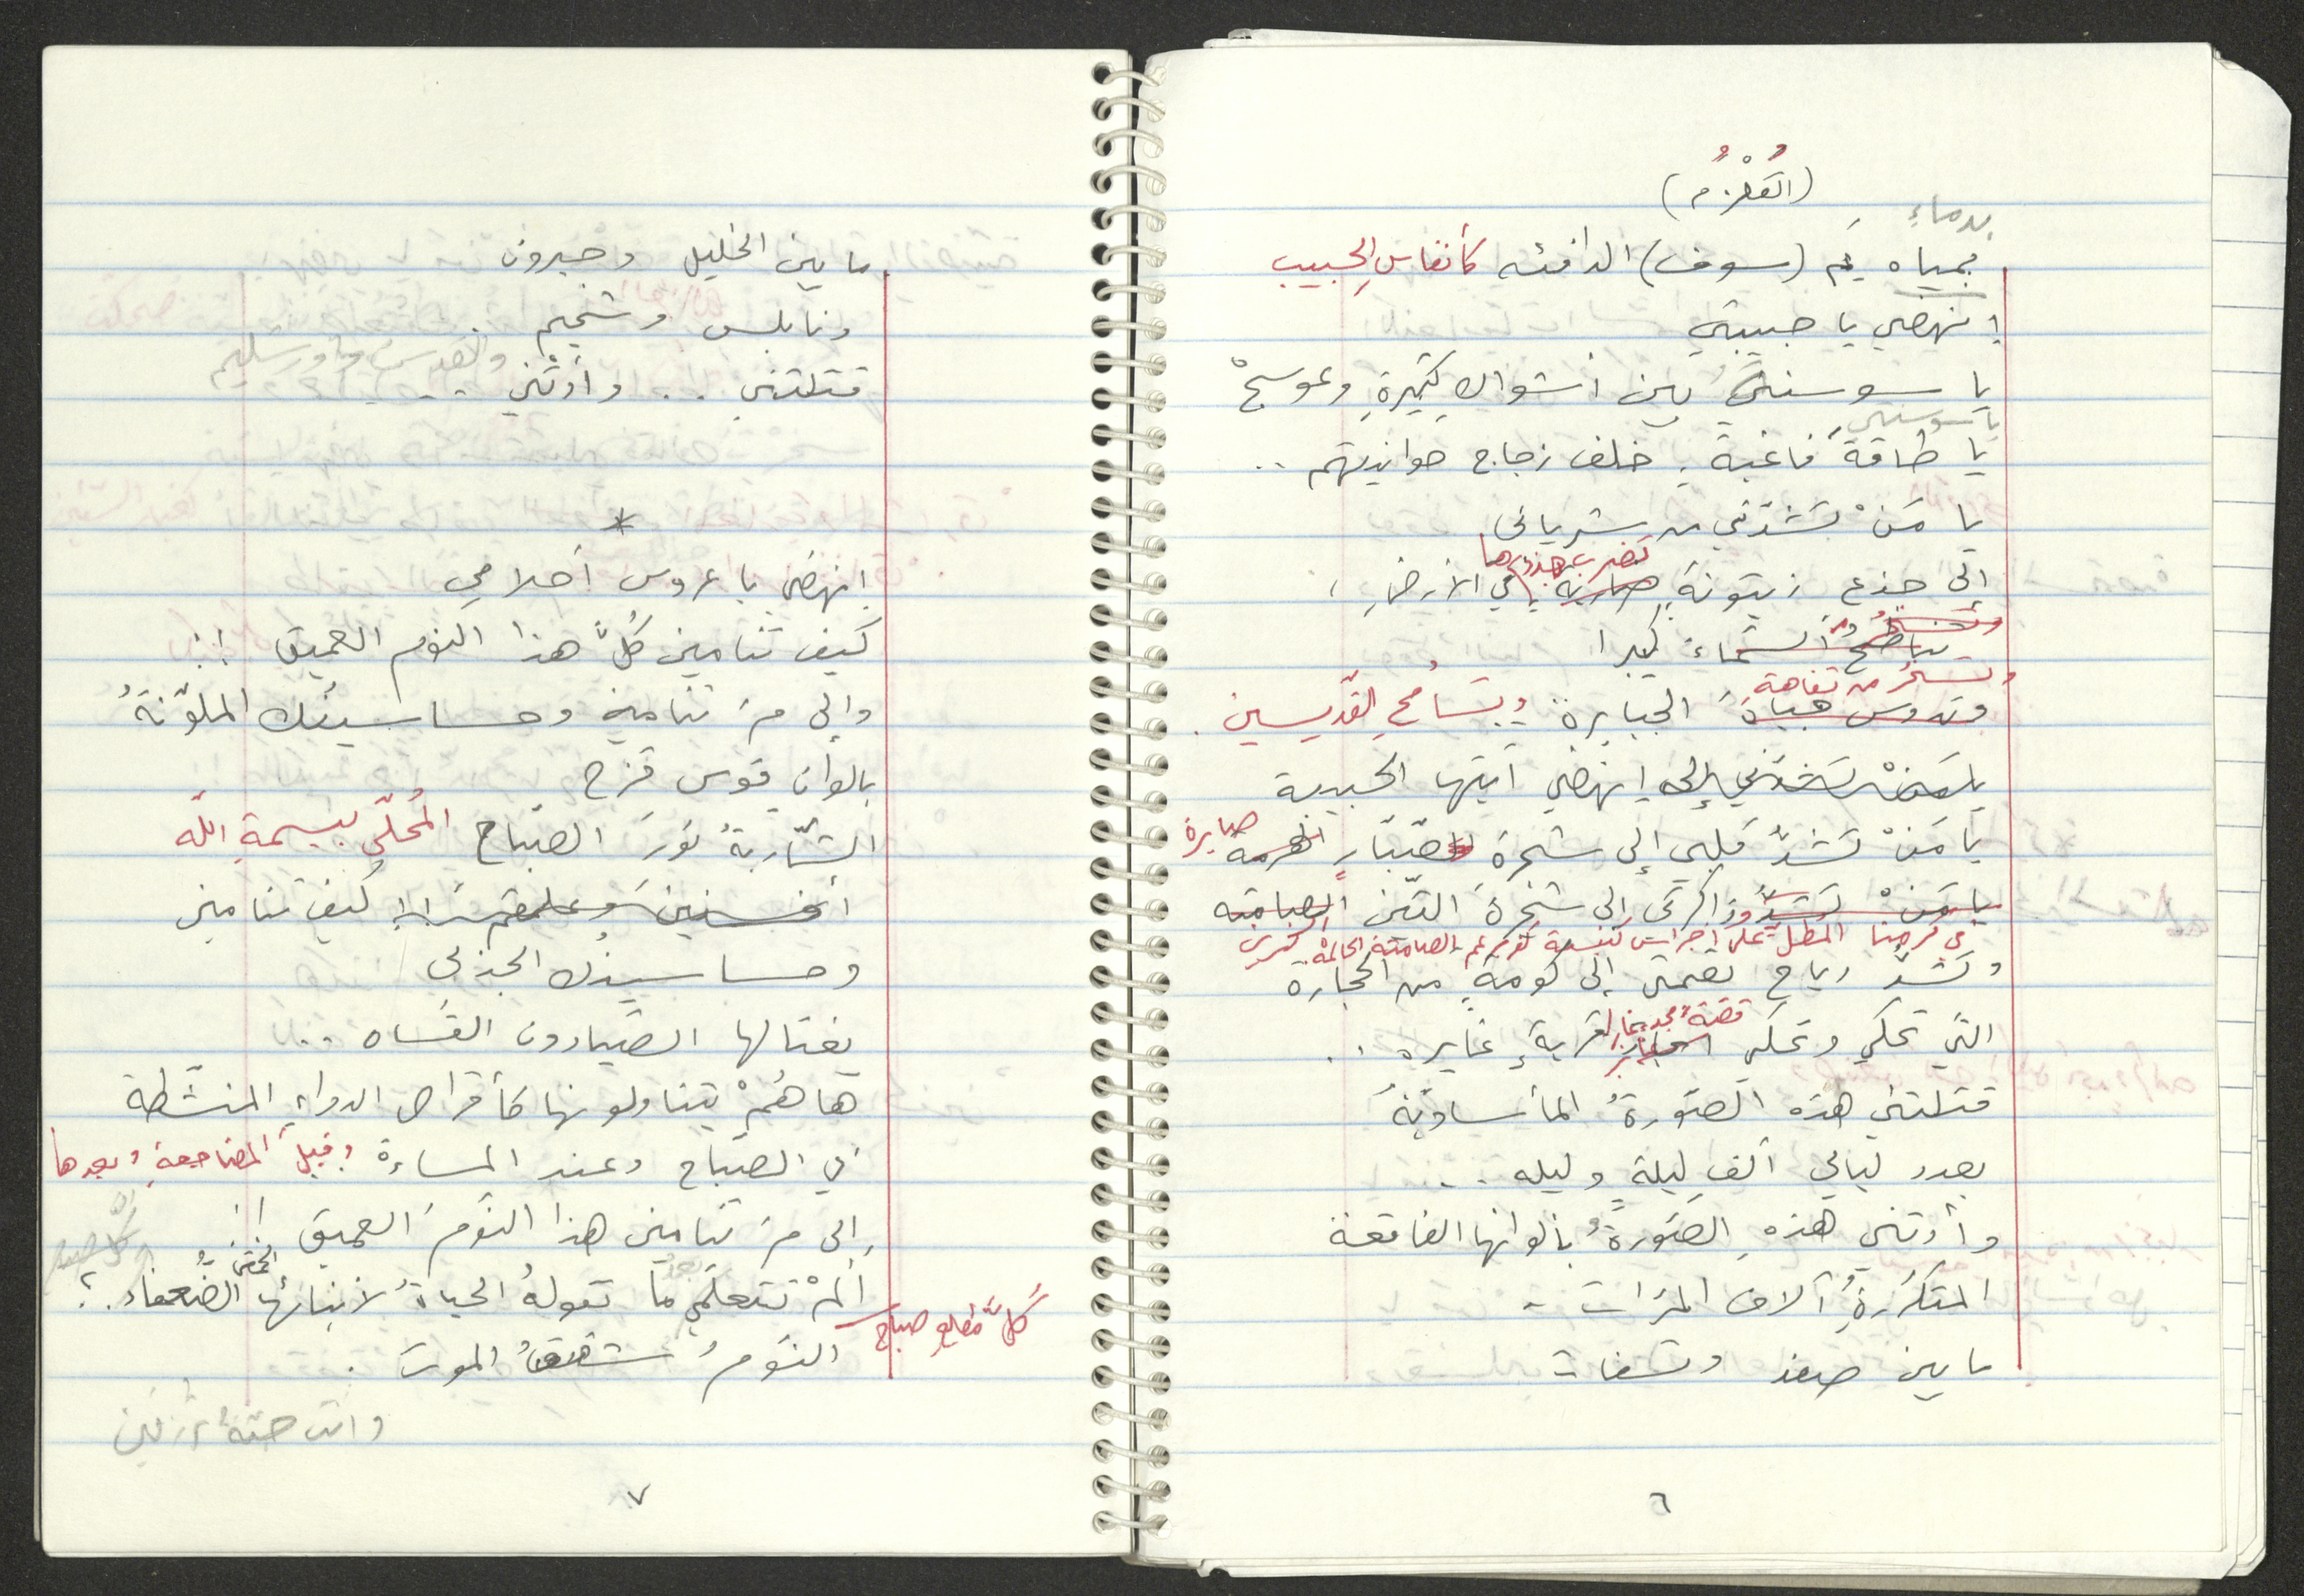 (القُلْزُم)
بدماء
بمياه يم (سوف) الدافئه كأنفاسِ الحبيب
إنهضي يا حبيبتي
يا سوسنةً بين أشواكٍ كثيرةٍ وعوسجْ
يا سوسنتي
يا طاقةَ فاغيةٍ خلف زجاج حوانيتهم ..
يا مَنْ تشدّني من شرياني
تضرب بجذورها
إلى جذعِ زيتونةٍ ضاربة في الأرضِ
وتناطحُ السَّماءَ كبرا
وتسخر من تفاهة
وتدوس هياةَ الجبابرة وبتسامحِ القدّيسين .
يا مَنْ تشدّني إلى إنهضي أيتها الحبيبة
يا مَنْ تشدّ قلبي إلى شجرة صبّارٍ الهرمة صابرة
يا مَنْ تشدُّ وذاكرتي إلى شجرةَ التّين الصامته
في كرمنا المطلّ على اجراس كنيسة الصامتة الحالمة الكبرى
وتشدّ رياح نقمتي إلى كومةٍ من الحجاره
قصّةَ مجد
التي تحكي وتحكي أخبار لقريةٍ غابره ..
قتلتني هذه الصّورةُ المأساويّةُ
بعدد ليالي ألفِ ليلةٍ وليله ..
وأدتني هذهِ الصّورةُ بألوانها الفاقعة
المتكرّرةِ آلاف المرّات -
ما بين صفد وتسفات
٦
ما بين الخليل وحبرون
ونابلس وشخيم .
والقدس وأورشليم
قتلتني .. وأدتْني ..
*
إنهضي يا عروس أحلامي
كيف تنامين كلَّ هذا النوم العميق !!
وإلى مَ تنامين وحساسينك الملوّنةُ
بالوان قوس قزح
الشّاربةُ نورَ الصّباح المُحلّى ببسمةِ الله
كيف تنامين
وحساسينُك الجذلى
يغتالها الصّيادون القساه ..
ها هُمْ يتناولونها كأقراص الدواءِ المنشّطة
في الصّباح وعند المساءِ وقبل المضاجعةِ وبعدها
إلى مَ تنامين هذا النّومَ العميق !!
ألمْ تتعلّمي بعدُ ما تقولهُ الحياةُ لأبنائها الحمقى الضُعفاء ؟
كلَّ مطلعِ صباح
النّومُ شقيقُ الموت .
وانت حيّةٌ ترزقين
٧